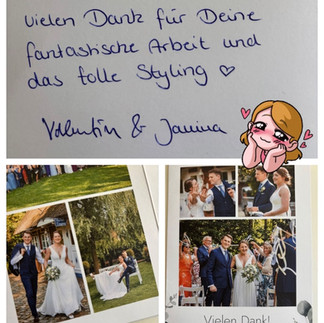 Vielen Dank für Deine
fantastische Arbeit und
das tolle Styling ♡
Valentin & Janina
Vielen Dank!